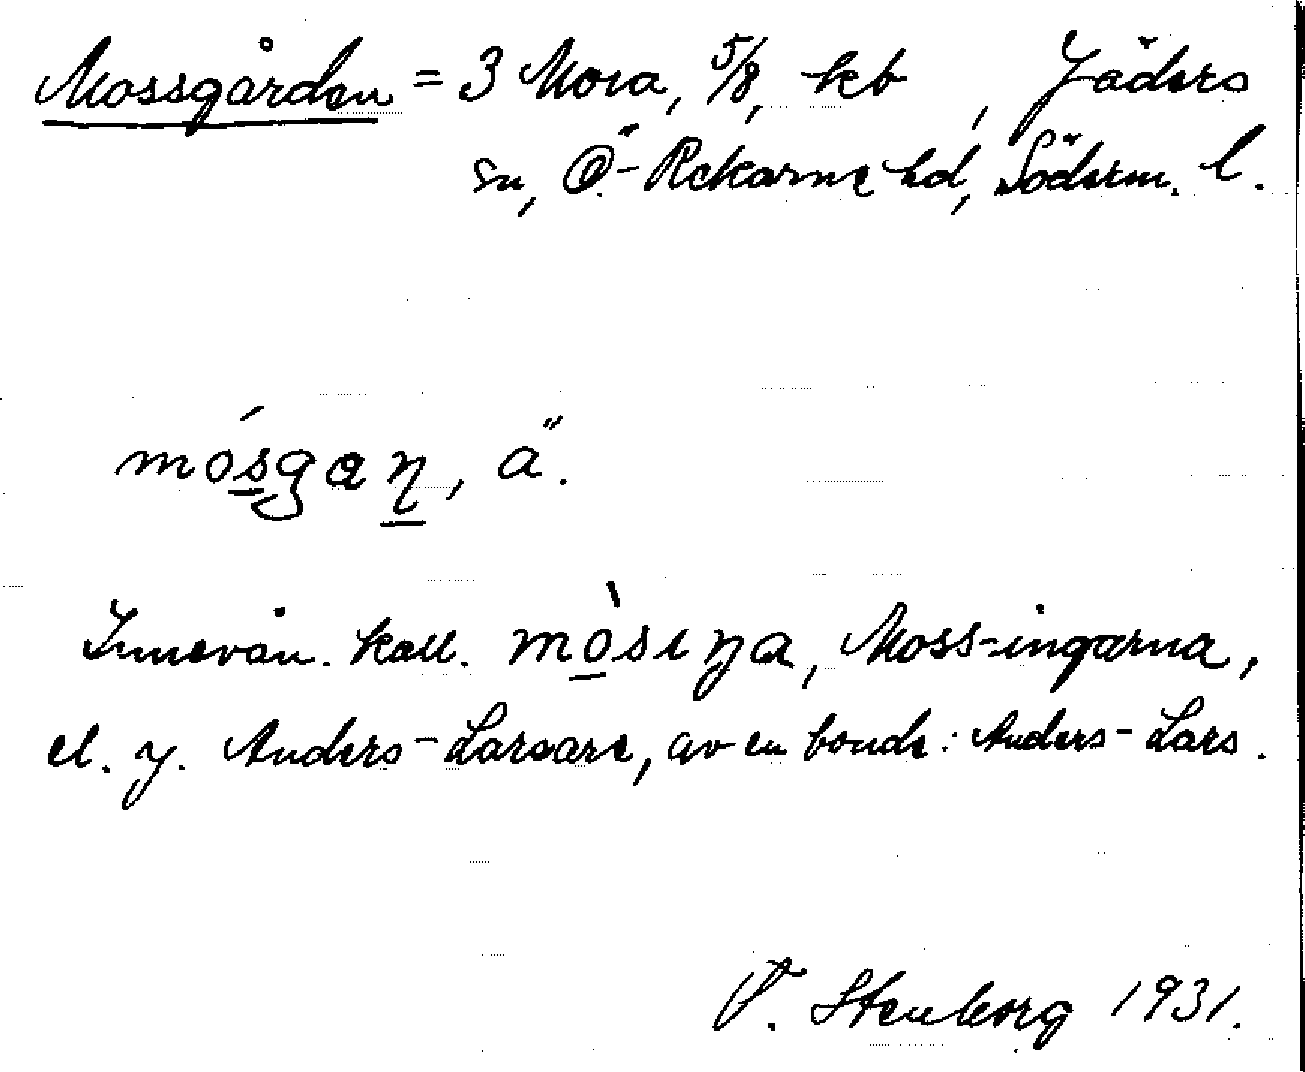 Mossgården = 3 Mora, 5/8, kb, Jäders
sn, Ö.-Rekarne hd, Söderm. l.
mósgaɳ, ä.
Innevån. kall. mòsıŋa, Moss-ingarna,
el. y. Anders-Larsare, av en bonde: Anders-Lars.
Stenborg 1931.